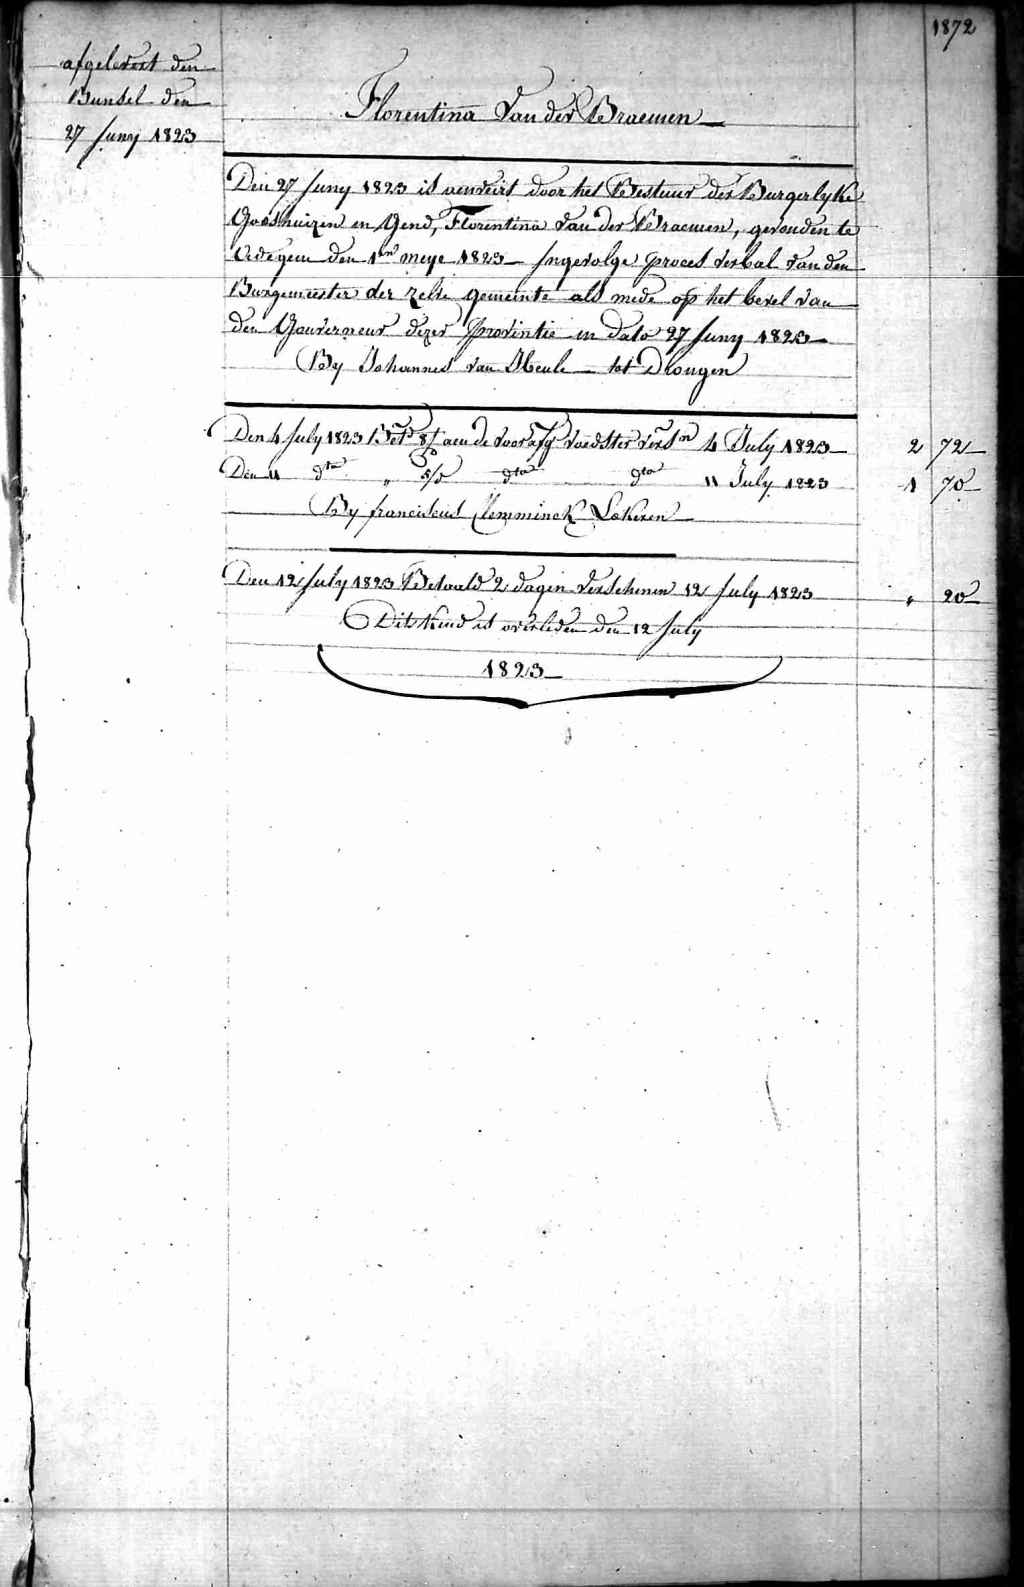 1872
afgelevert den
Bunsel den
27 Juny 1823
Florentina Van der Braemen
Den 27 Juny 1823 is aenveirt door het Bestuur der Burgerlyke
Godshuizen en Gend, Florentina Van der Braemen, gevonden te
den 1en meye 1823 Ingevolge proces verbal van den
Burgemeester der zelve gemeinte als mede op het bevel van
den Gouverneur dezer provintie in dato 27 Juny 1823
By Johannes van Heule tot Drongen
Den 4 July 1823 aen de voorafg voedster 4 July 1823 2 72
Den 11 dto " 5/ dto dto 11 July 1823 1 70
By franciscus Clemminck Lokeren
Den 12 July 1823 Betaald 2 dagen verschenen 12 July 1823 " 20
Dit Kind is overleden den 12 July
1823